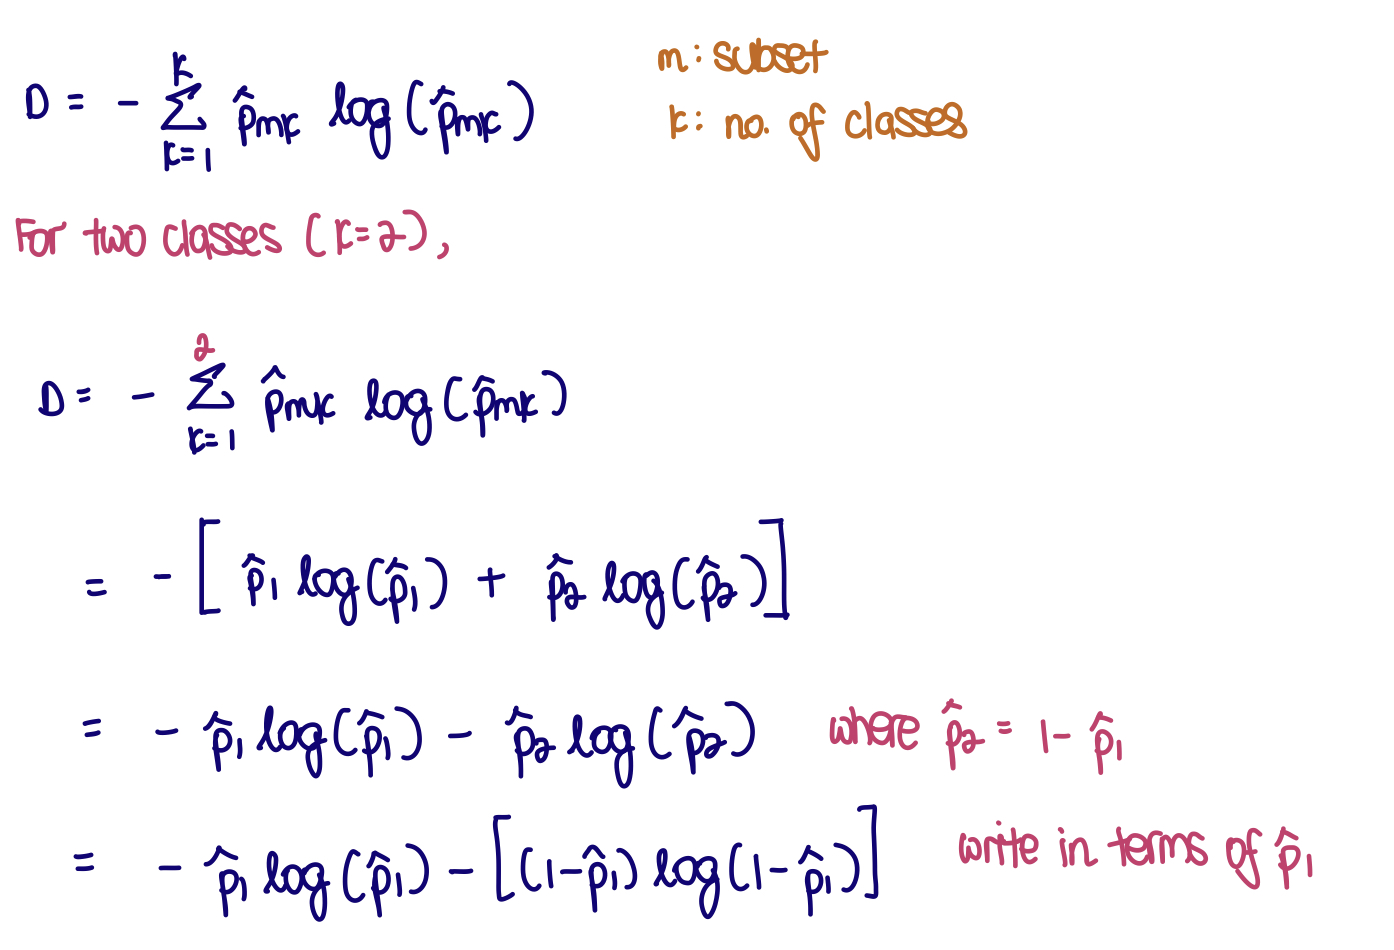 D = - K∑k=1 p̂mk log(p̂mk)
m: subset
k: no. of classes
For two classes (k=2),
D = - 2∑k=1 p̂mk log(p̂mk)
= - [ p̂1 log(p̂1) + p̂2 log(p̂2) ]
= - p̂1 log(p̂1) - p̂2 log(p̂2) where p̂2 = 1 - p̂1
= - p̂1 log(p̂1) - [(1-p̂1) log(1-p̂1)] write in terms of p̂1